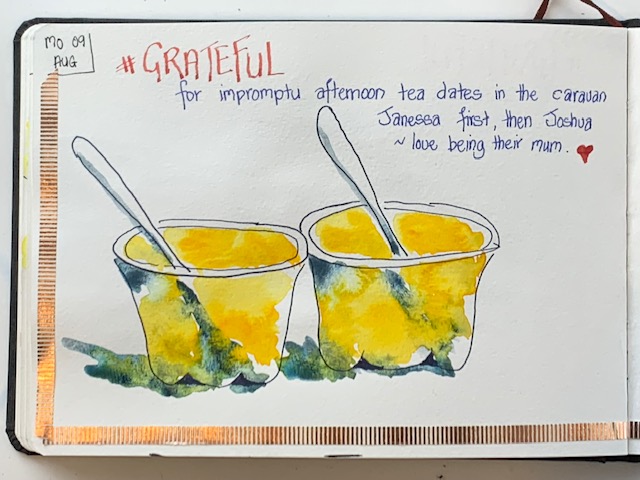 MO 09
AUG
#GRATEFUL
for impromptu afternoon tea dates in the caravan
Janessa first, then Joshua
~ love being their mum.